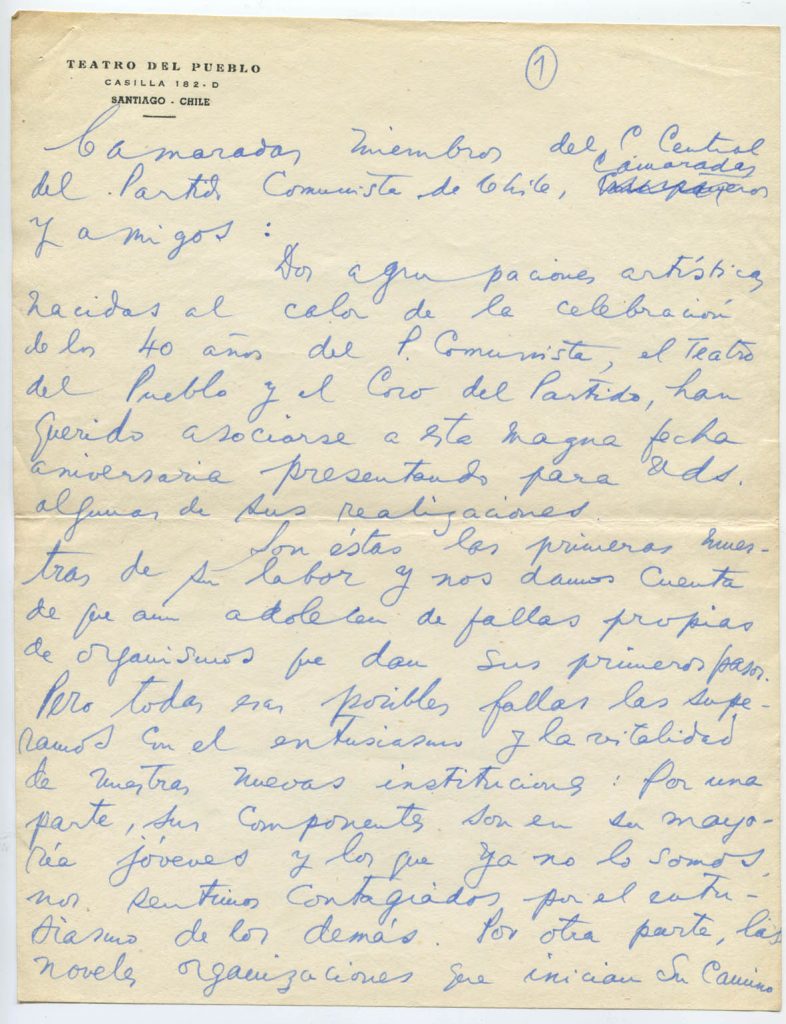 TEATRO DEL PUEBLO
CASILLA 182 - D
SANTIAGO - CHILE
1
Camaradas miembros del C Central
del Partido Comunista de Chile, Camaradas
y amigos :
Dos agrupaciones artísticas
nacidas al calor de la celebración
de los 40 años del P. Comunista, el Teatro
del Pueblo y el Coro del Partido, han
querido asociarse a esta magna fecha
aniversaria presentando para Uds.
algunas de sus realizaciones.
Son éstas las primeras mues-
tras de su labor y nos damos cuenta
de que aun adolecen de fallas propias
de organismos que dan sus primeros pasos.
Pero todas esas posibles fallas las supe-
ramos con el entusiasmo y la vitalidad
de nuestras nuevas instituciones : Por una
parte, sus componentes son en su mayo-
ría jóvenes y los que ya no lo somos,
nos sentimos contagiados por el entu-
siasmo de los demás. Por otra parte, las
noveles organizaciones que inician su camino